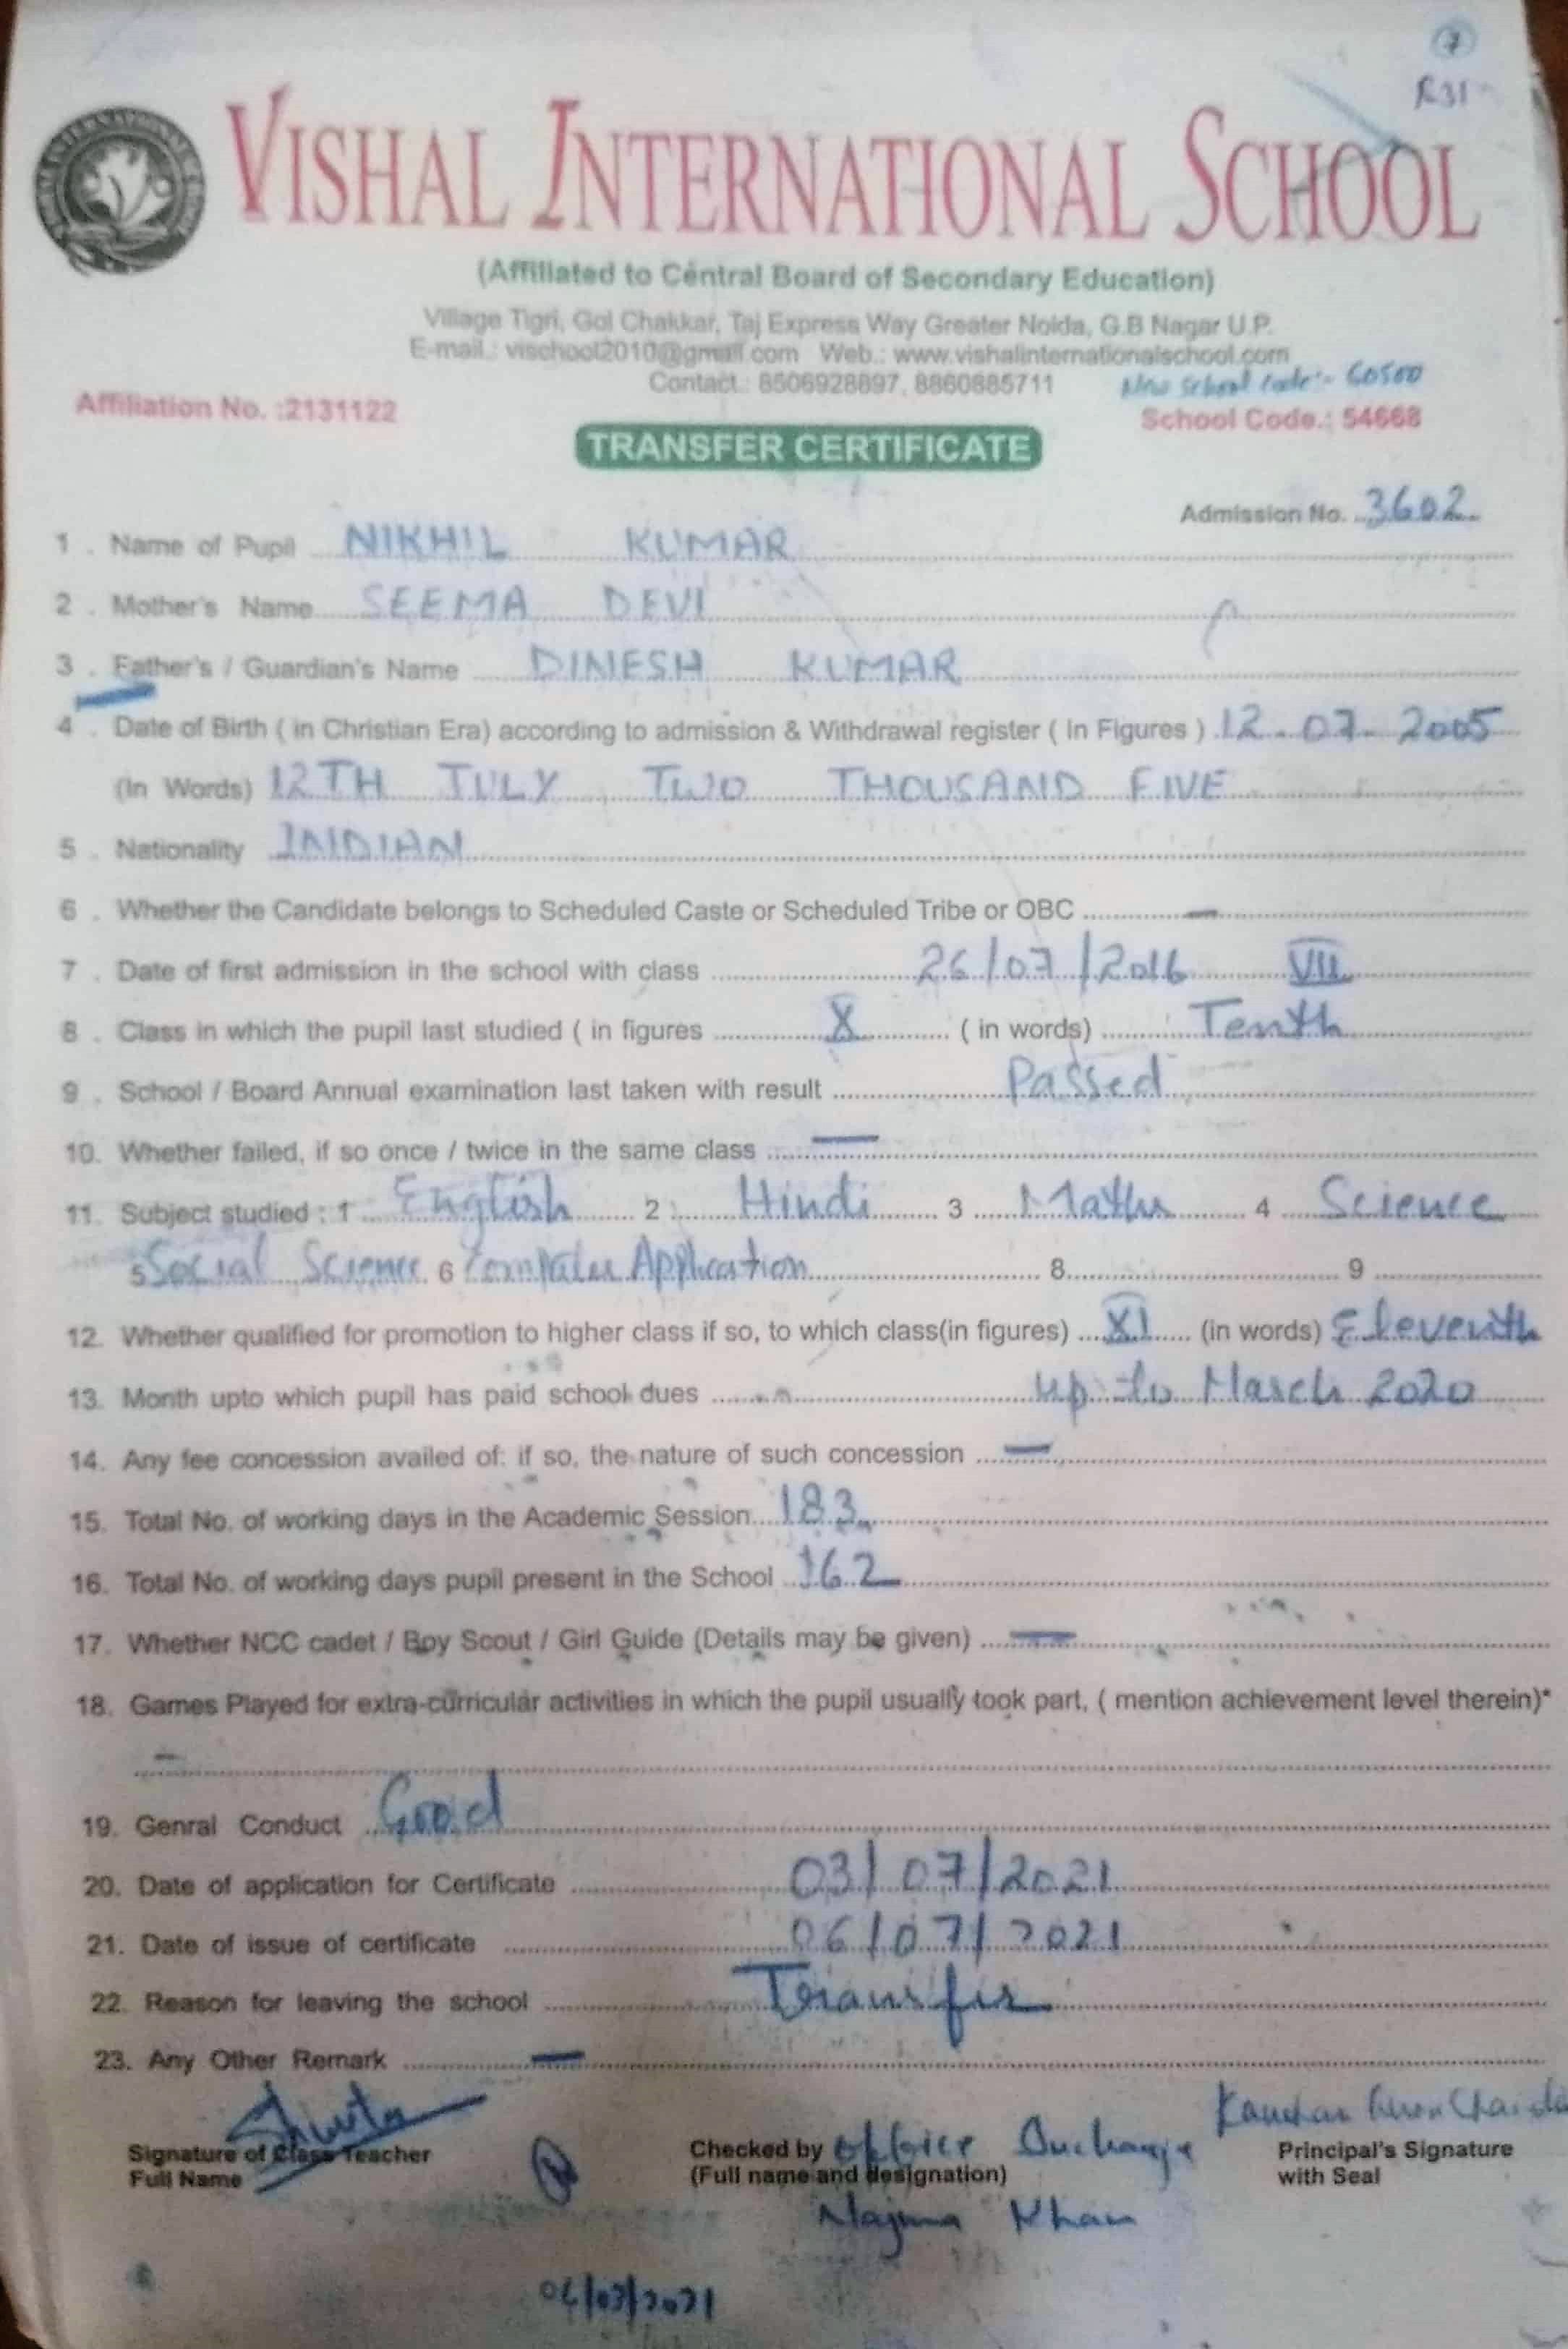 7
R31
VISHAL INTERNATIONAL SCHOOL
(Affiliated to Central Board of Secondary Education)
Village Tigri, Gol Chakkar, Taj Express Way Greater Noida, G.B Nagar U.P.
E-mail.: vischool2010@gmail.com Web.: www.vishalinternationalschool.com
Contact.: 8506928897, 8860885711 New School Code:- 60500
Affiliation No. :2131122 School Code.: 54668
TRANSFER CERTIFICATE
Admission No. 3602
1 . Name of Pupil NIKHIL KUMAR
2 . Mother's Name SEEMA DEVI
3 . Father's / Guardian's Name DINESH KUMAR
4 . Date of Birth ( in Christian Era) according to admission & Withdrawal register ( In Figures ) 12-07-2005
(In Words) 12TH JULY TWO THOUSAND FIVE
5 . Nationality INDIAN
6 . Whether the Candidate belongs to Scheduled Caste or Scheduled Tribe or OBC —
7 . Date of first admission in the school with class 26/07/2016 VII
8 . Class in which the pupil last studied ( in figures X ( in words) Tenth
9 . School / Board Annual examination last taken with result Passed
10. Whether failed, if so once / twice in the same class —
11. Subject studied : 1 English 2 : Hindi 3 Maths 4 Science
5 Social Science 6 Computer Application 8 9
12. Whether qualified for promotion to higher class if so, to which class(in figures) XI (in words) Eleventh
13. Month upto which pupil has paid school dues up to March 2020
14. Any fee concession availed of: if so, the nature of such concession —
15. Total No. of working days in the Academic Session 183
16. Total No. of working days pupil present in the School 162
17. Whether NCC cadet / Boy Scout / Girl Guide (Details may be given) —
18. Games Played for extra-curricular activities in which the pupil usually took part, ( mention achievement level therein)*
—
19. Genral Conduct Good
20. Date of application for Certificate 03/07/2021
21. Date of issue of certificate 06/07/2021
22. Reason for leaving the school Transfer
23. Any Other Remark —
Shweta
Signature of Class Teacher Checked by Office Principal's Signature
Full Name (Full name and designation) with Seal
Najma Khan
06/07/2021